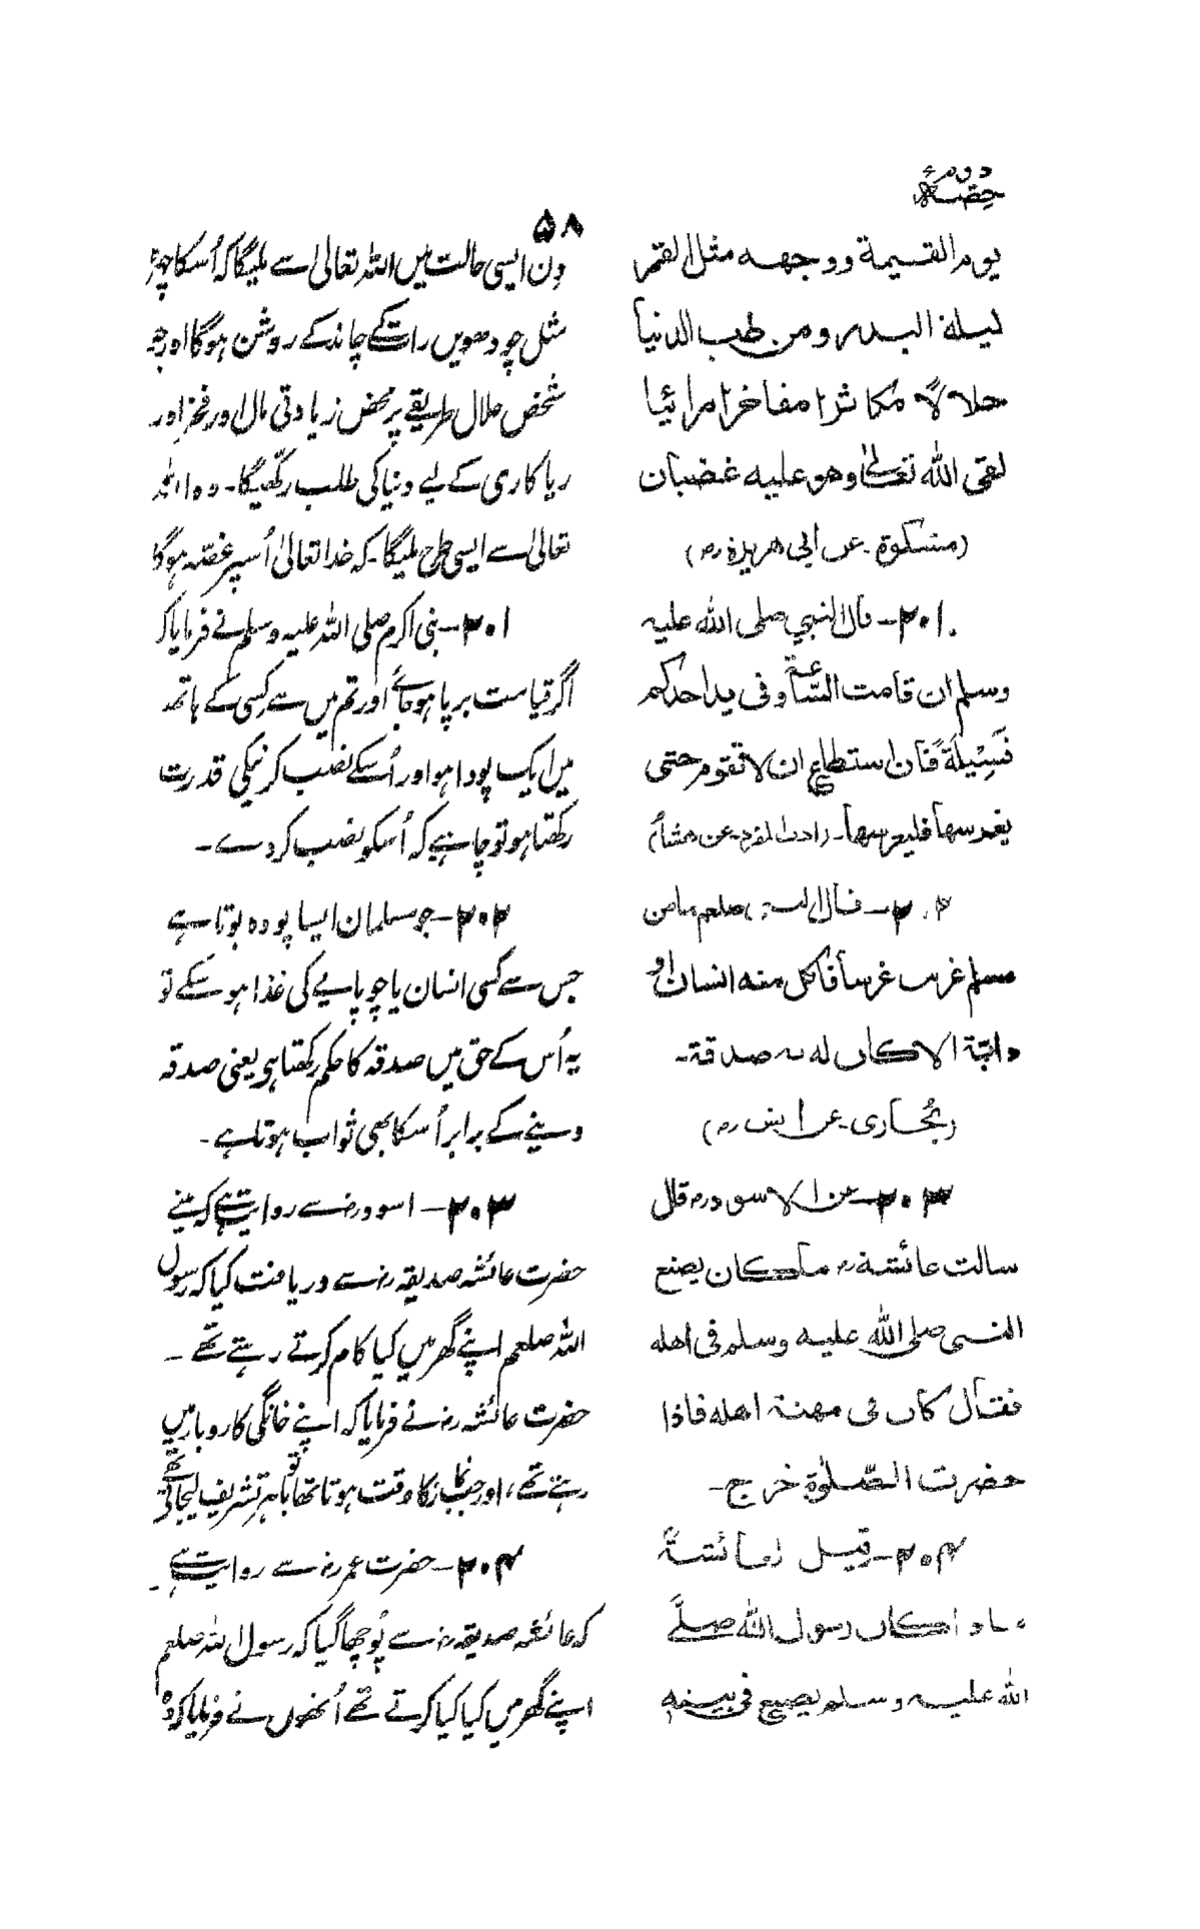 حصہ دوم
۵۸
يوم القيمة ووجهه مثل القمر
ليلة البدر ومن طلب الدنيا
حلالاً مكاثرا مفاخرا مرائيا
لقى الله تعالىٰ وهو عليه غضبان
(مشكوة ـ عن ابي هريرة رم)
۲۰۱ـ قال النبي صلى الله عليه
وسلم ان قامت الساعة وفى يد احدكم
فَسِيْلَةً فان استطاع ان لا تقوم حتى
يغرسها فليغرسها ـ (ادب المفرد ـ عن
۲۰۲ـ قال صلعم ما من
مسلم غرس غرسا فاكل منه انسان او
دابّة الا كان له به صدقة ـ
(بُخارى ـ عن انس رم)
۲۰۳ـ عن الاسود رم قال
سالت عائشة رم ما كان يصنع
النبى صلى الله عليه وسلم فى اهله
فقال كان فى مهنة اهله فاذا
حضرت الصّلوٰة خرج ـ
۲۰۴ـ قيل لعائشة
ماذا كان رسول الله صلَّے
الله عليه وسلم يصنع فى بيته
دن ایسی حالت میں اللہ تعالیٰ سے ملیگا کہ اُسکا چہرہ
مثل چودھویں رات کے چاند کے روشن ہوگا اور جو
شخص حلال طریقے پر محض زیادتی مال اور فخر اور
ریاکاری کے لیے دنیا کی طلب رکھیگا۔ وہ اللہ
تعالیٰ سے ایسی طرح ملیگا۔ کہ خدا تعالیٰ اُسپر غصّہ ہوگا
۲۰۱ـ نبی اکرم صلی اللہ علیہ وسلم نے فرمایا کہ
اگر قیامت برپا ہوجائے اور تم میں سے کسی کے ہاتھ
میں ایک پودا ہو اور اُسکے نصب کرنیکی قدرت
رکھتا ہو تو چاہیے کہ اُسکو نصب کردے ـ
۲۰۲ـ جو مسلمان ایسا پودہ بوتا ہے
جس سے کسی انسان یا چوپایے کی غذا ہو سکے تو
یہ اُس کے حق میں صدقہ کا حکم رکھتا ہو یعنی صدقہ
دینے کے برابر اُسکا بھی ثواب ہوتا ہے ـ
۲۰۳ـ اسود رضہ سے روایت ہے کہ مینے
حضرت عائشہ صدیقہ رضہ سے دریافت کیا کہ رسول
اللہ صلعم اپنے گھر میں کیا کام کرتے رہتے تھے ـ
حضرت عائشہ رضہ نے فرمایا کہ اپنے خانگی کاروبار میں
رہتے تھے، اور جب نماز کا وقت ہوتا تھا تو باہر تشریف لیجاتے تھے
۲۰۴ـ حضرت عمرہ رضہ سے روایت ہے ـ
کہ عائشہ صدیقہ رضہ سے پُوچھا گیا کہ رسول اللہ صلعم
اپنے گھر میں کیا کیا کرتے تھے اُنھوں نے فرمایا کہ وہ